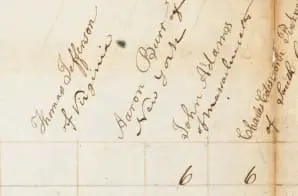 Thomas Jefferson
of Virginia
Aaron Burr of
New York
John Adams
of Massachusetts
Charles Cotesworth
of South
6 6